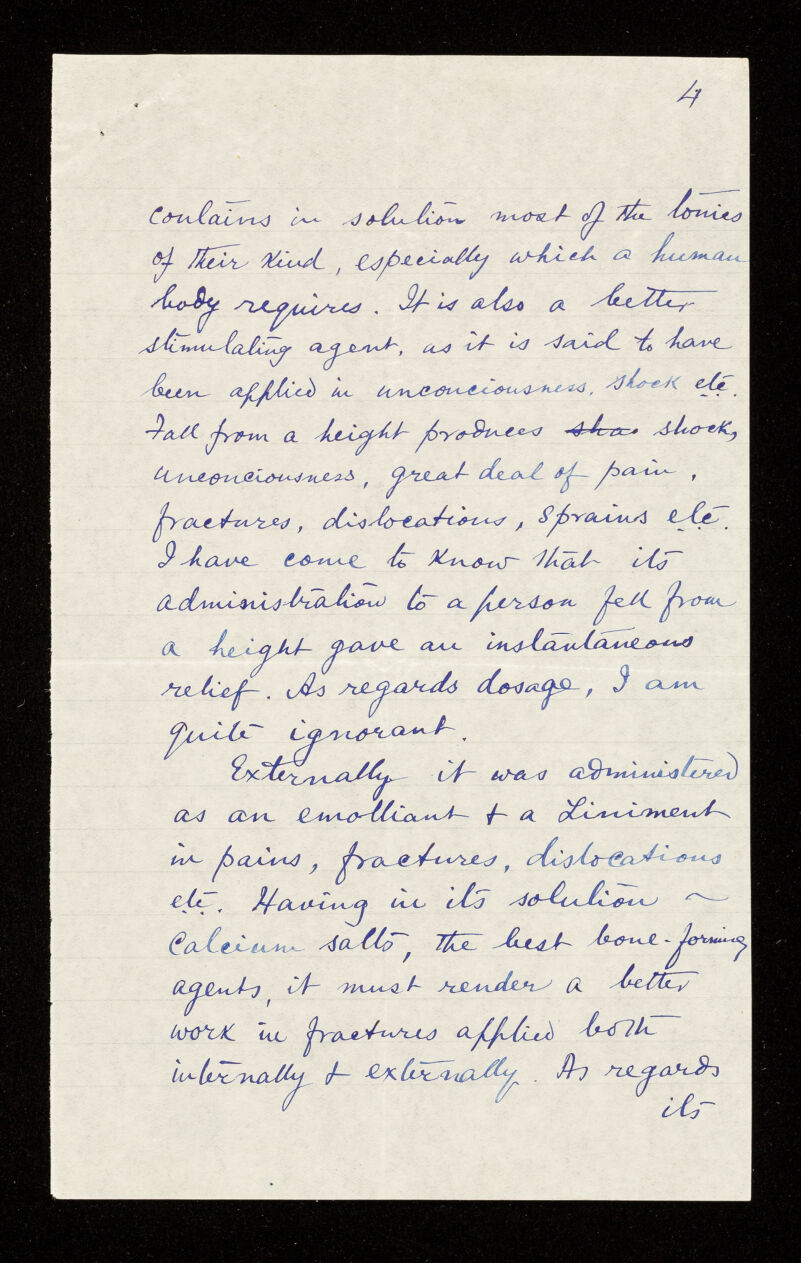 4
contains in solution most of the tonics
of their kind, especially which a human
body requires. It is also a better
stimulating agent, as it is said to have
been applied in unconciousness, shock etc.
Fall from a height produces sho shock,
unconciousness, great deal of pain,
fractures, dislocations, sprains etc.
I have come to know that its
administration to a person fell from
a height gave an instantaneous
relief. As regards dosage, I am
quite ignorant.
Externally it was administered
as an emolliant & a Liniment
in pains, fractures, dislocations
etc. Having in its solution ~
Calcium salts, the best bone-forming
agents, it must render a better
work in fractures applied both
internally & externally. As regards
its